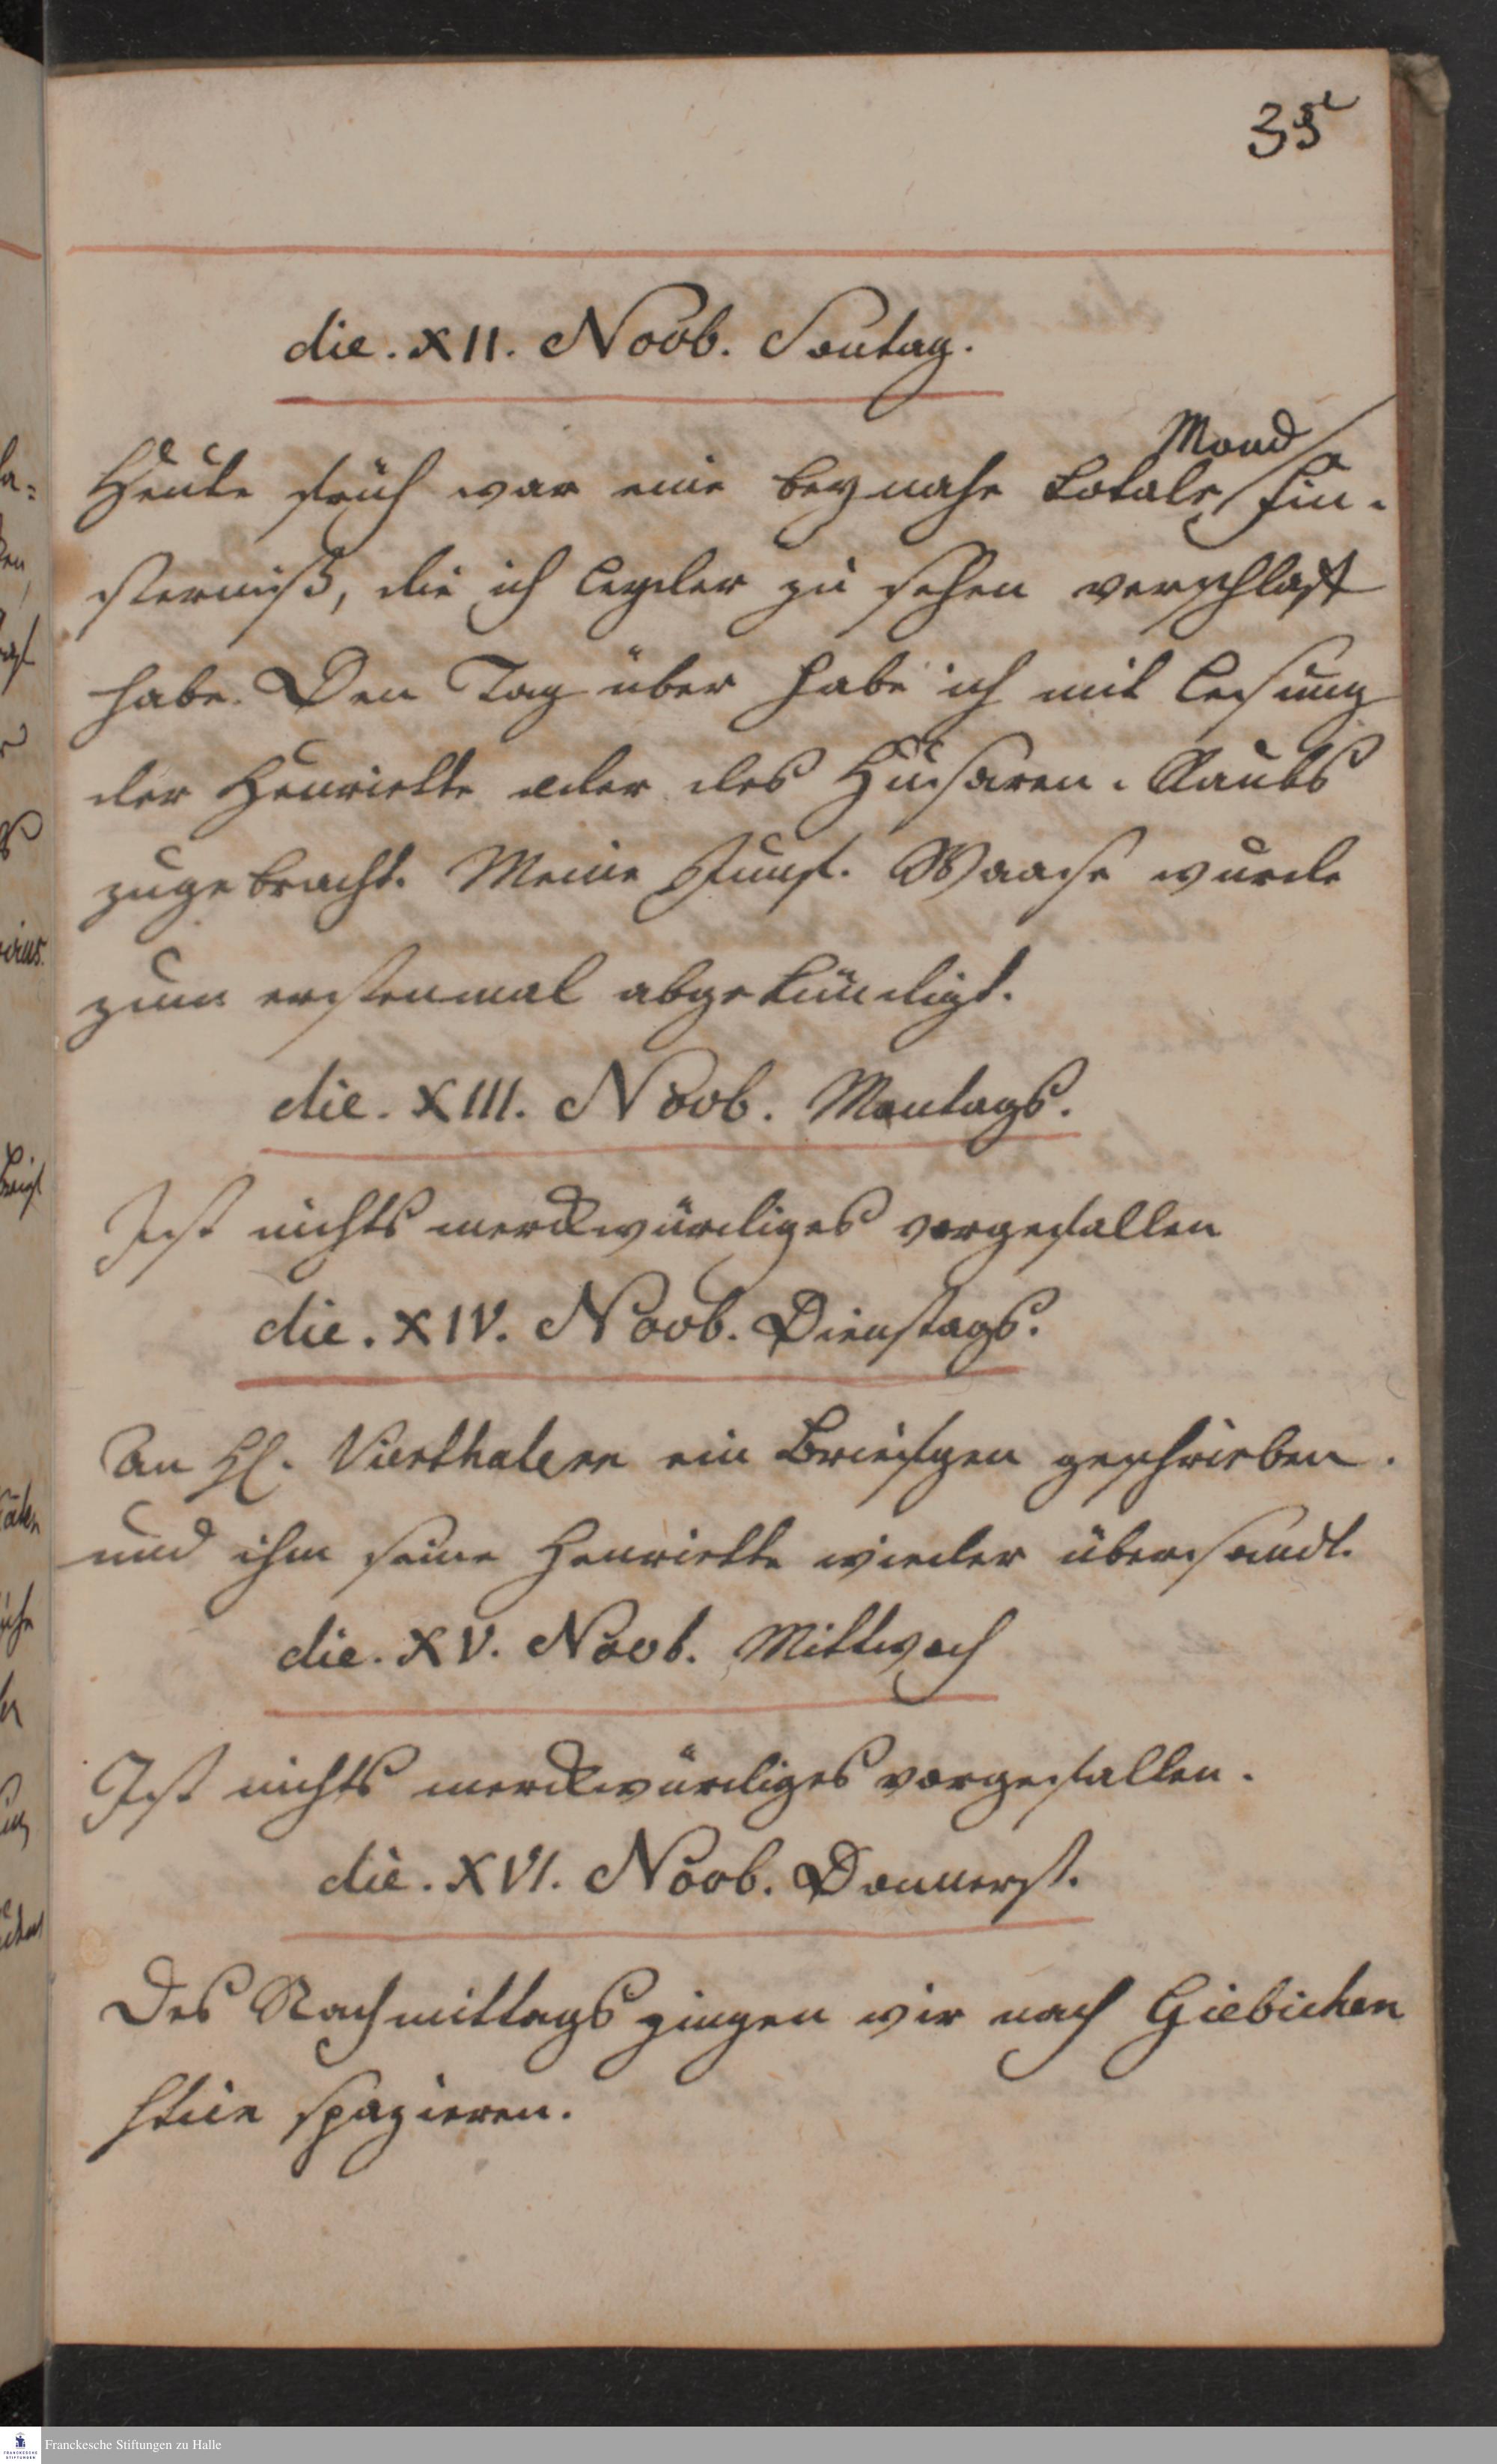 35
die. XII. Novb. Sontag.
Mond
Heute früh war eine beynahe totale Fin-
sterniß, die ich leyder zu sehen verschlaft
habe. Den Tag über habe ich mit Lesung
der Henriette oder des Husaren-Raubs
zugebracht. Meine Jungf. Waase wurde
zum erstenmal abgekündigt.
die. XIII. Novb. Montags.
Ist nichts merckwürdiges vorgefallen
die. XIV. Novb. Dienstags.
An H. Vierthalern ein Briefgen geschrieben.
und ihm seine Henriette wieder übersandt.
die. XV. Novb. Mittwoch
Ist nichts merckwürdiges vorgefallen.
die. XVI. Novb. Donnerst.
Des Nachmittags gingen wir nach Giebichen
stein spazieren.
Franckesche Stiftungen zu Halle